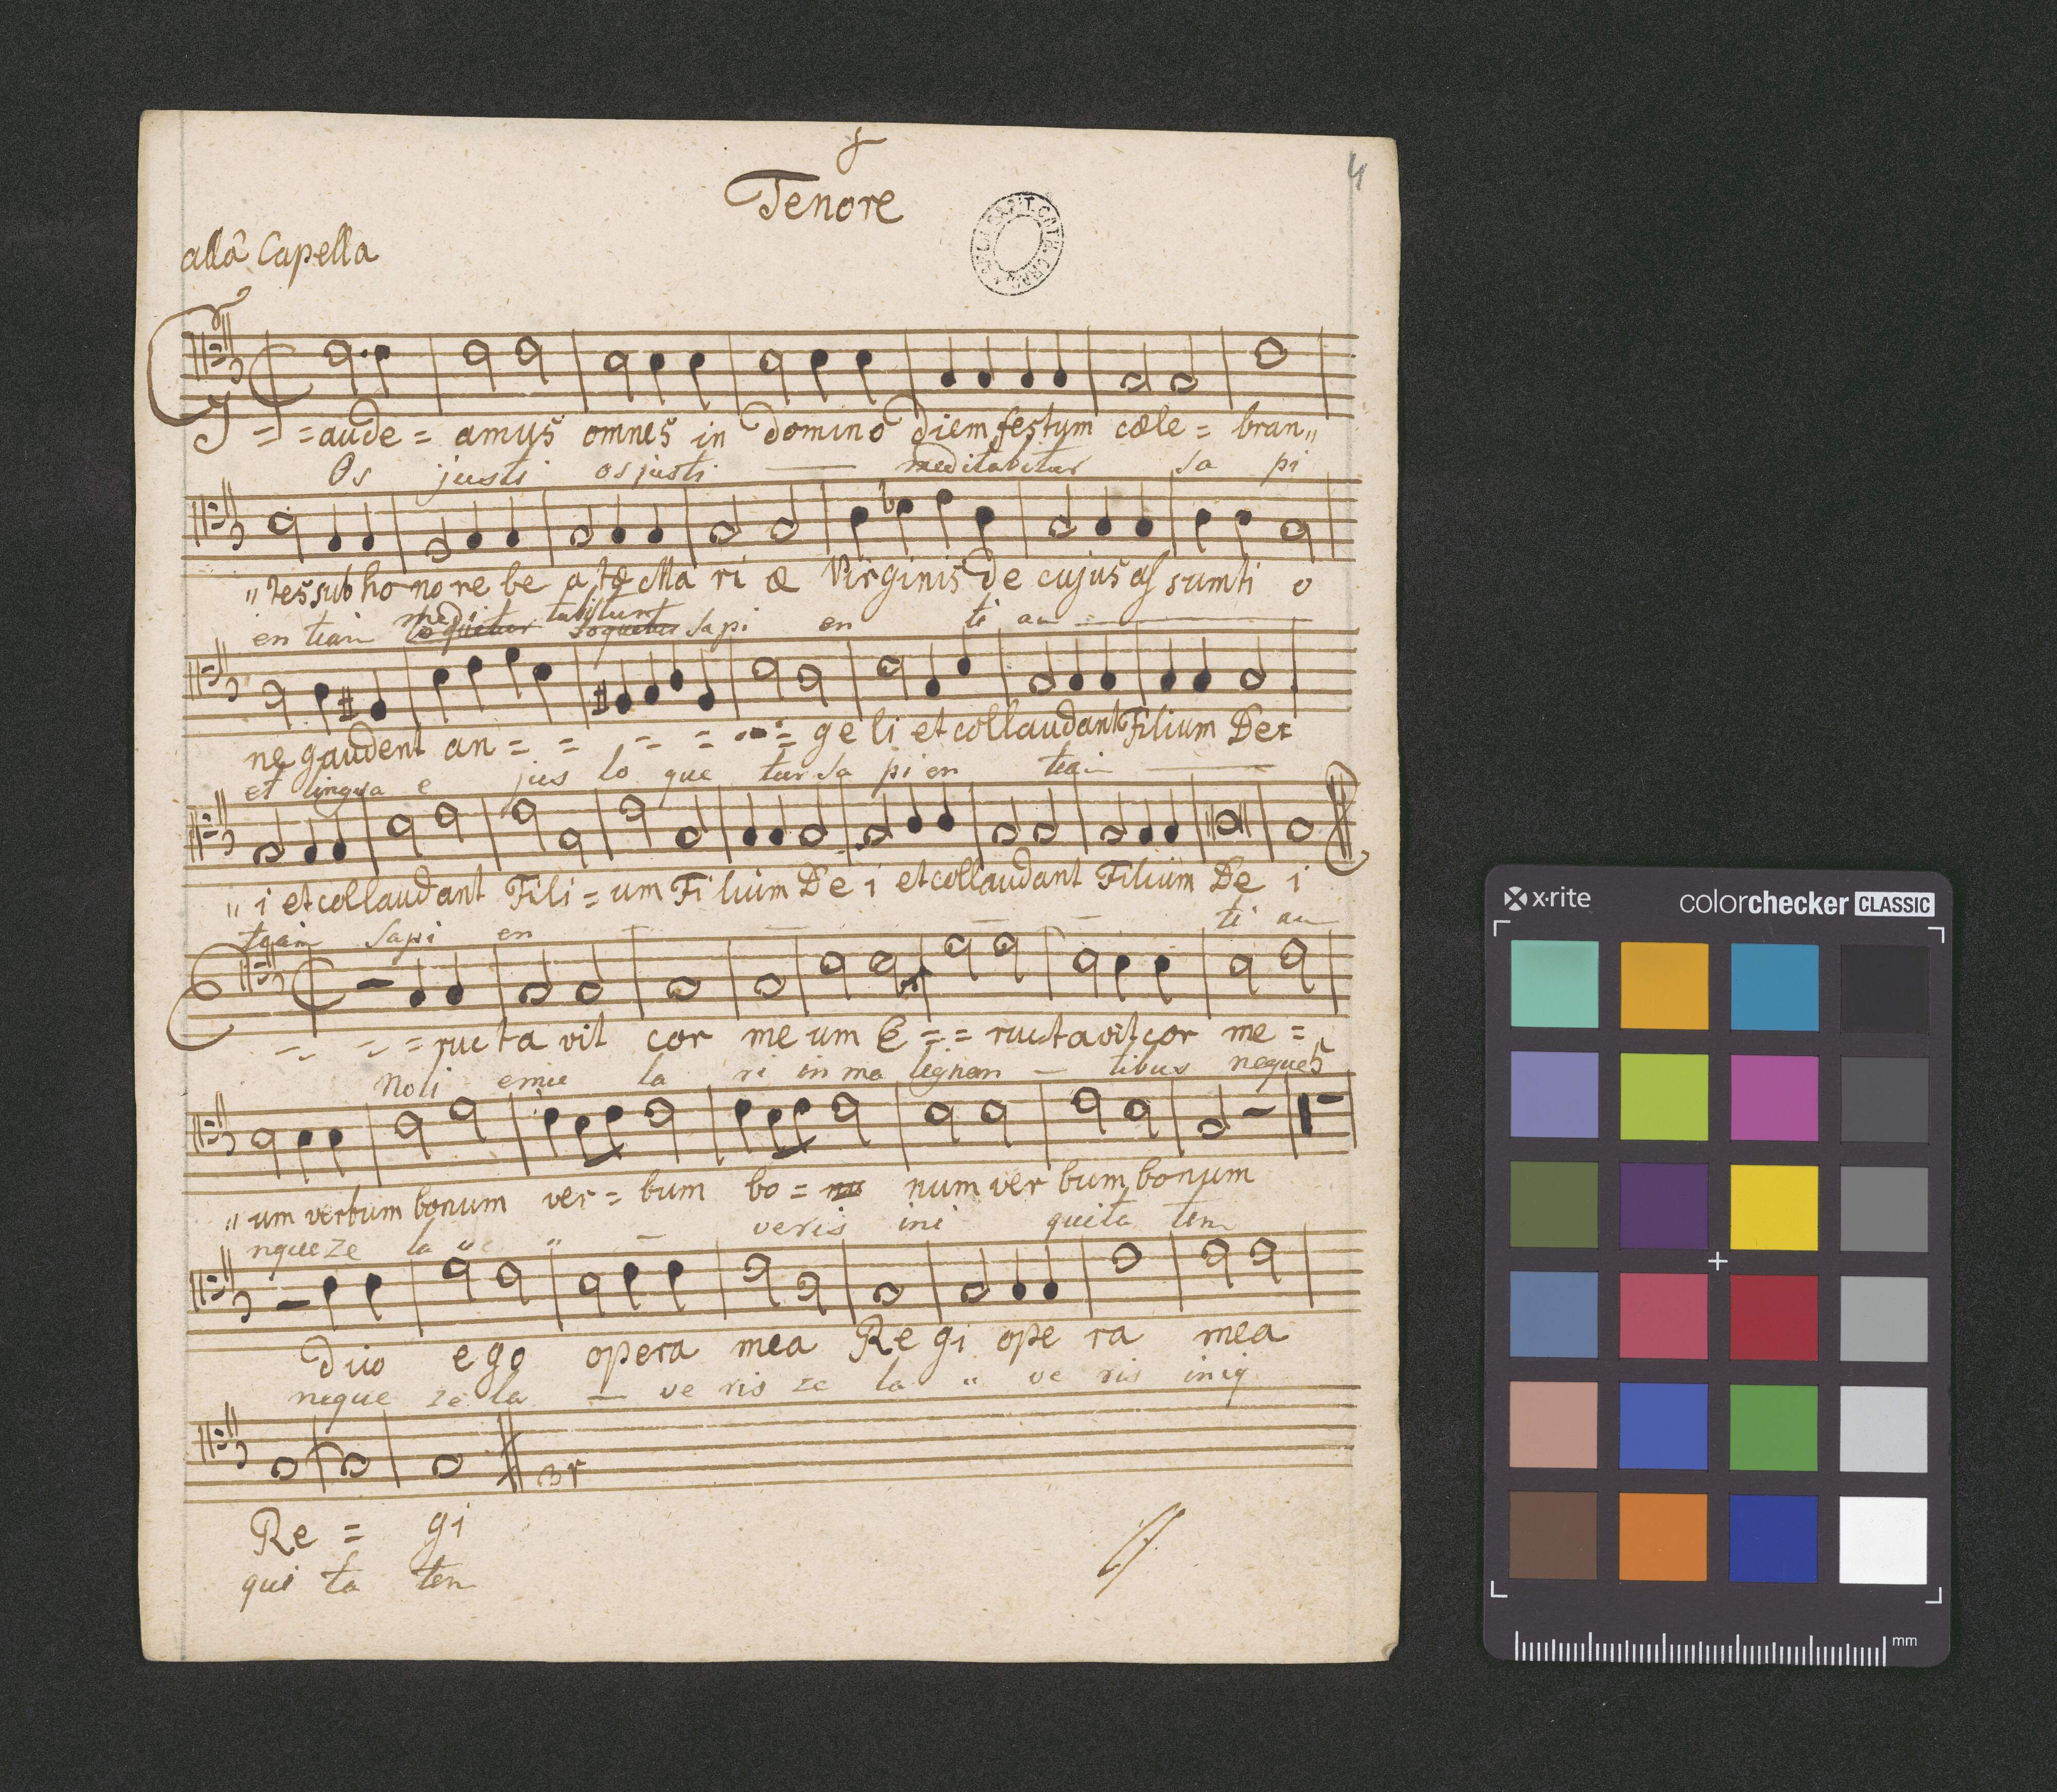 4
Tenore
alla Capella
G = = aude = amus omnes in Domino diem festum cæle = bran„
Os justi os justi — meditabitur sa pi
„tes sub ho no re be a tæ Ma ri æ Virginis De cujus as sumti o
en tiam loquetur medi loquetur tabitur sapi en ti am —
ne gaudent an = = = = = ge li et collaudant Filium De =
et lingua e jus lo que tur sa pi en tiam —
„ i et collaudant Fili = um Fi lium De i et collaudant Filium De i
tiam sapi en — — — — ti am
E = = ructa vit cor me um E = = ructavit cor me =
Noli emu la ri in ma lignan — tibus neque
„ um verbum bonum ver = bum bo = nu num ver bum bonum
nque ze la ve „ — veris ini quita tem
dico ego opera mea Re gi ope ra mea
neque ze la — ve ris ze la „ ve ris iniq
Re = gi
qui ta tem
x·rite colorchecker CLASSIC
mm